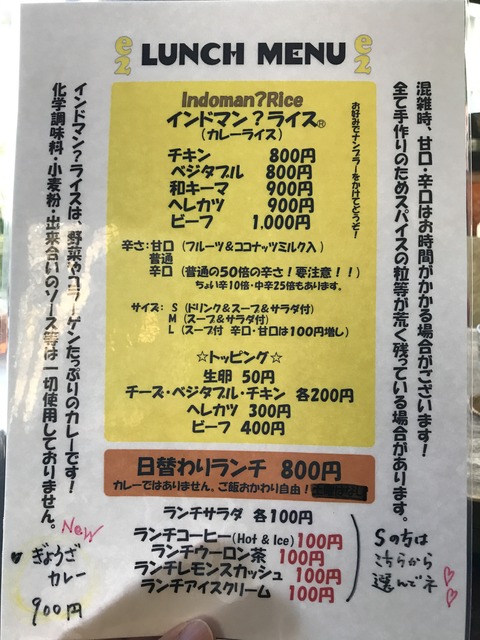 e2 LUNCH MENU e2
混雑時、甘口・辛口はお時間がかかる場合がございます！
全て手作りのためスパイスの粒等が荒く残っている場合があります。
Indoman?Rice
インドマン？ライス®
（カレーライス）
お好みでナンプラーをかけてどうぞ！
チキン 800円
ベジタブル 800円
和キーマ 900円
ヘレカツ 900円
ビーフ 1.000円
辛さ：甘口（フルーツ＆ココナッツミルク入）
普通
辛口（普通の50倍の辛さ！要注意！！）
ちょい辛10倍・中辛25倍もあります。
サイズ： S（ドリンク＆スープ＆サラダ付）
M（スープ＆サラダ付）
L（スープ付 辛口・甘口は100円増し）
☆トッピング☆
生卵 50円
チーズ・ベジタブル・チキン 各200円
ヘレカツ 300円
ビーフ 400円
インドマン？ライスは、野菜やコラーゲンたっぷりのカレーです！
化学調味料・小麦粉・出来合いのソース等は一切使用しておりません。
日替わりランチ 800円
カレーではありません。ご飯おかわり自由！
ランチサラダ 各100円
ランチコーヒー(Hot & Ice)100円
ランチウーロン茶 100円
ランチレモンスカッシュ 100円
ランチアイスクリーム 100円
Sの方は
こちらから
選んでネ
New
ぎょうざ
カレー
900円